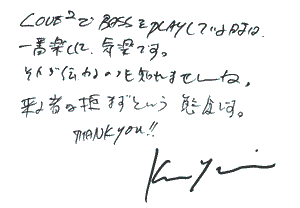 LOVE²でBASSをPLAYしている時は、
一番楽しくて、気楽です。
それが伝わるのかも知れませんね。
来る者は拒まずという態度です。
THANK YOU!!